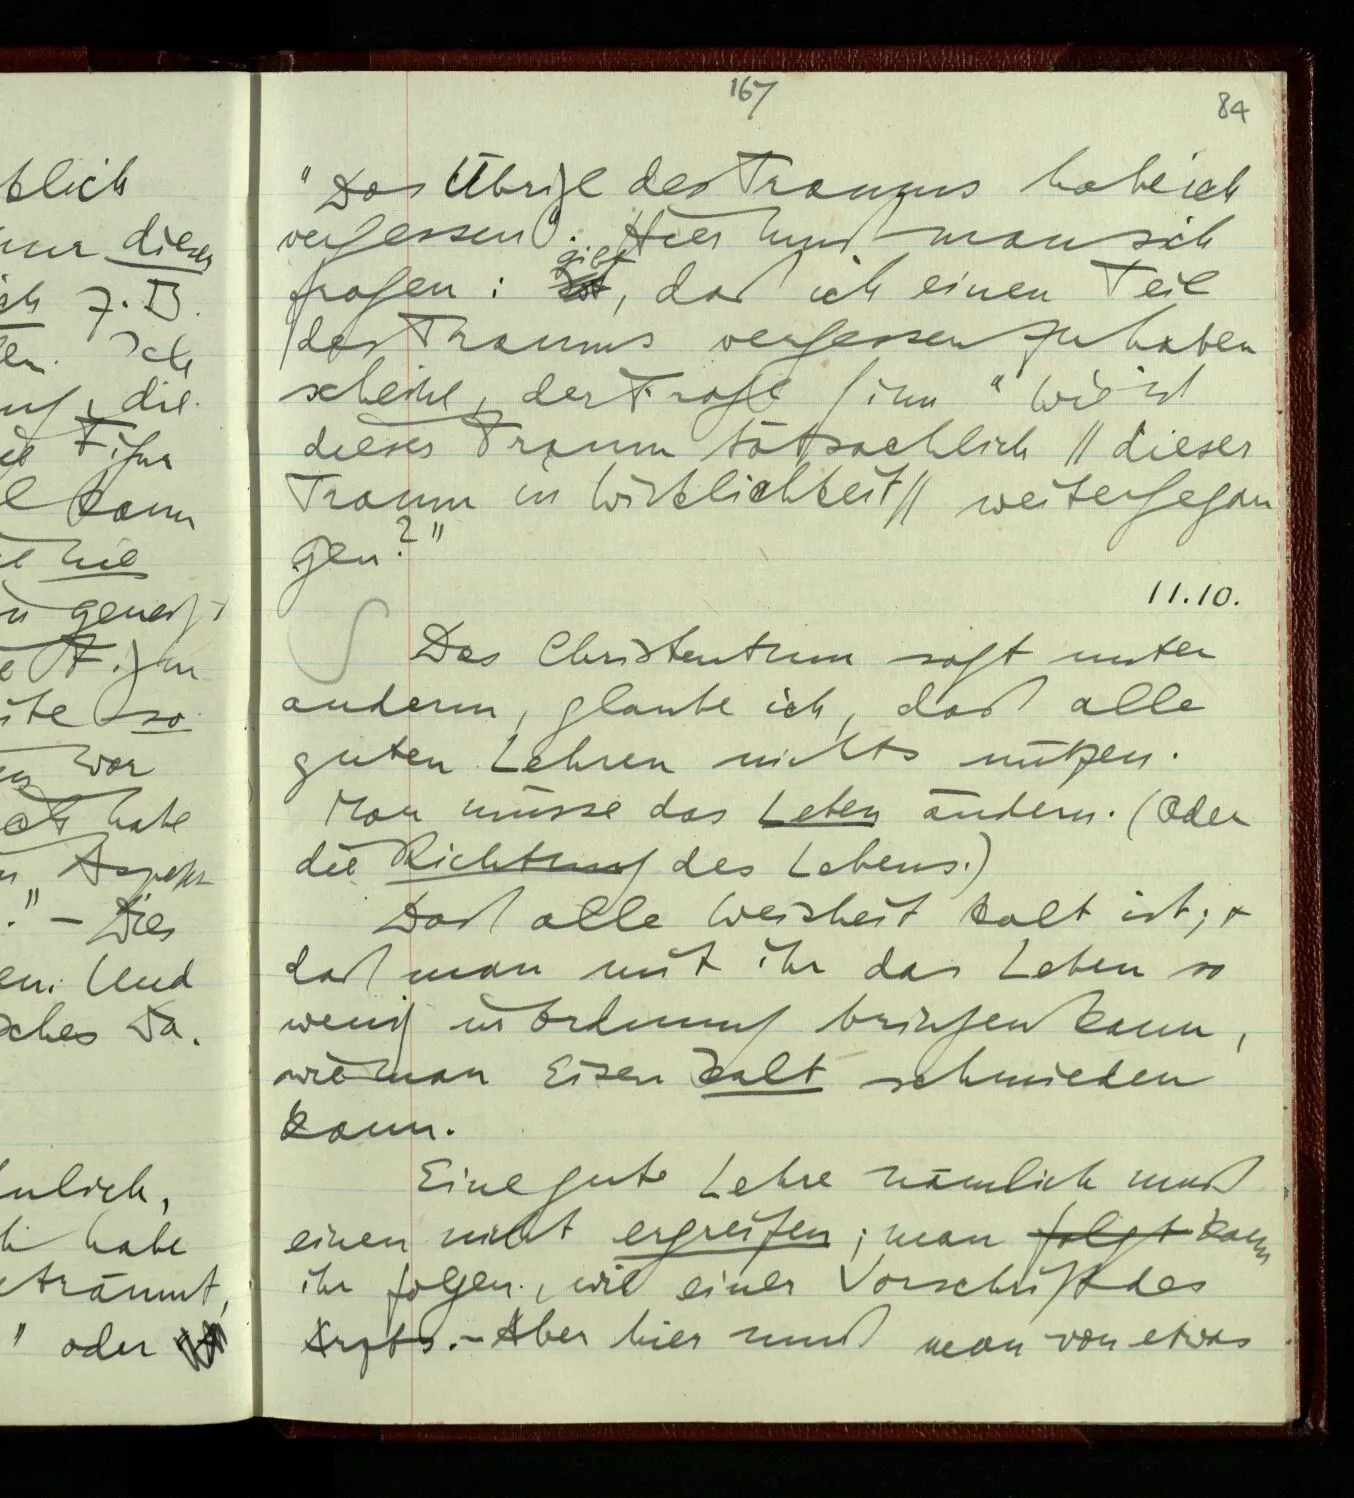 167
84
blich
nur dieses
ich z.B.
len. Ich
auf, die
die Figur
kann
nie
zu geneigt
so
war
ich habe
Aspekt
." – Dies
en. Und
sches Da.
hnlich,
ich habe
eträumt,
" oder
"Das Übrige des Traums habe ich
vergessen". Hier muß man sich
fragen: gibt
ist, daß ich einen Teil
des Traums vergessen zu haben
scheine, der Frage Sinn "Wie ist
dieser Traum tatsächlich // dieser
Traum in Wirklichkeit // weitergegan
gen?"
11.10.
Das Christentum sagt unter
anderm, glaube ich, daß alle
guten Lehren nichts nützen.
Man müsse das Leben ändern. (Oder
die Richtung des Lebens.)
Daß alle Weisheit kalt ist; &
daß man mit ihr das Leben so
wenig in Ordnung bringen kann,
wie man Eisen kalt schmieden
kann.
Eine gute Lehre nämlich muß
einen nicht ergreifen; man folgt kann
ihr folgen, wie einer Vorschrift des
Arzts. – Aber hier muß man von etwas